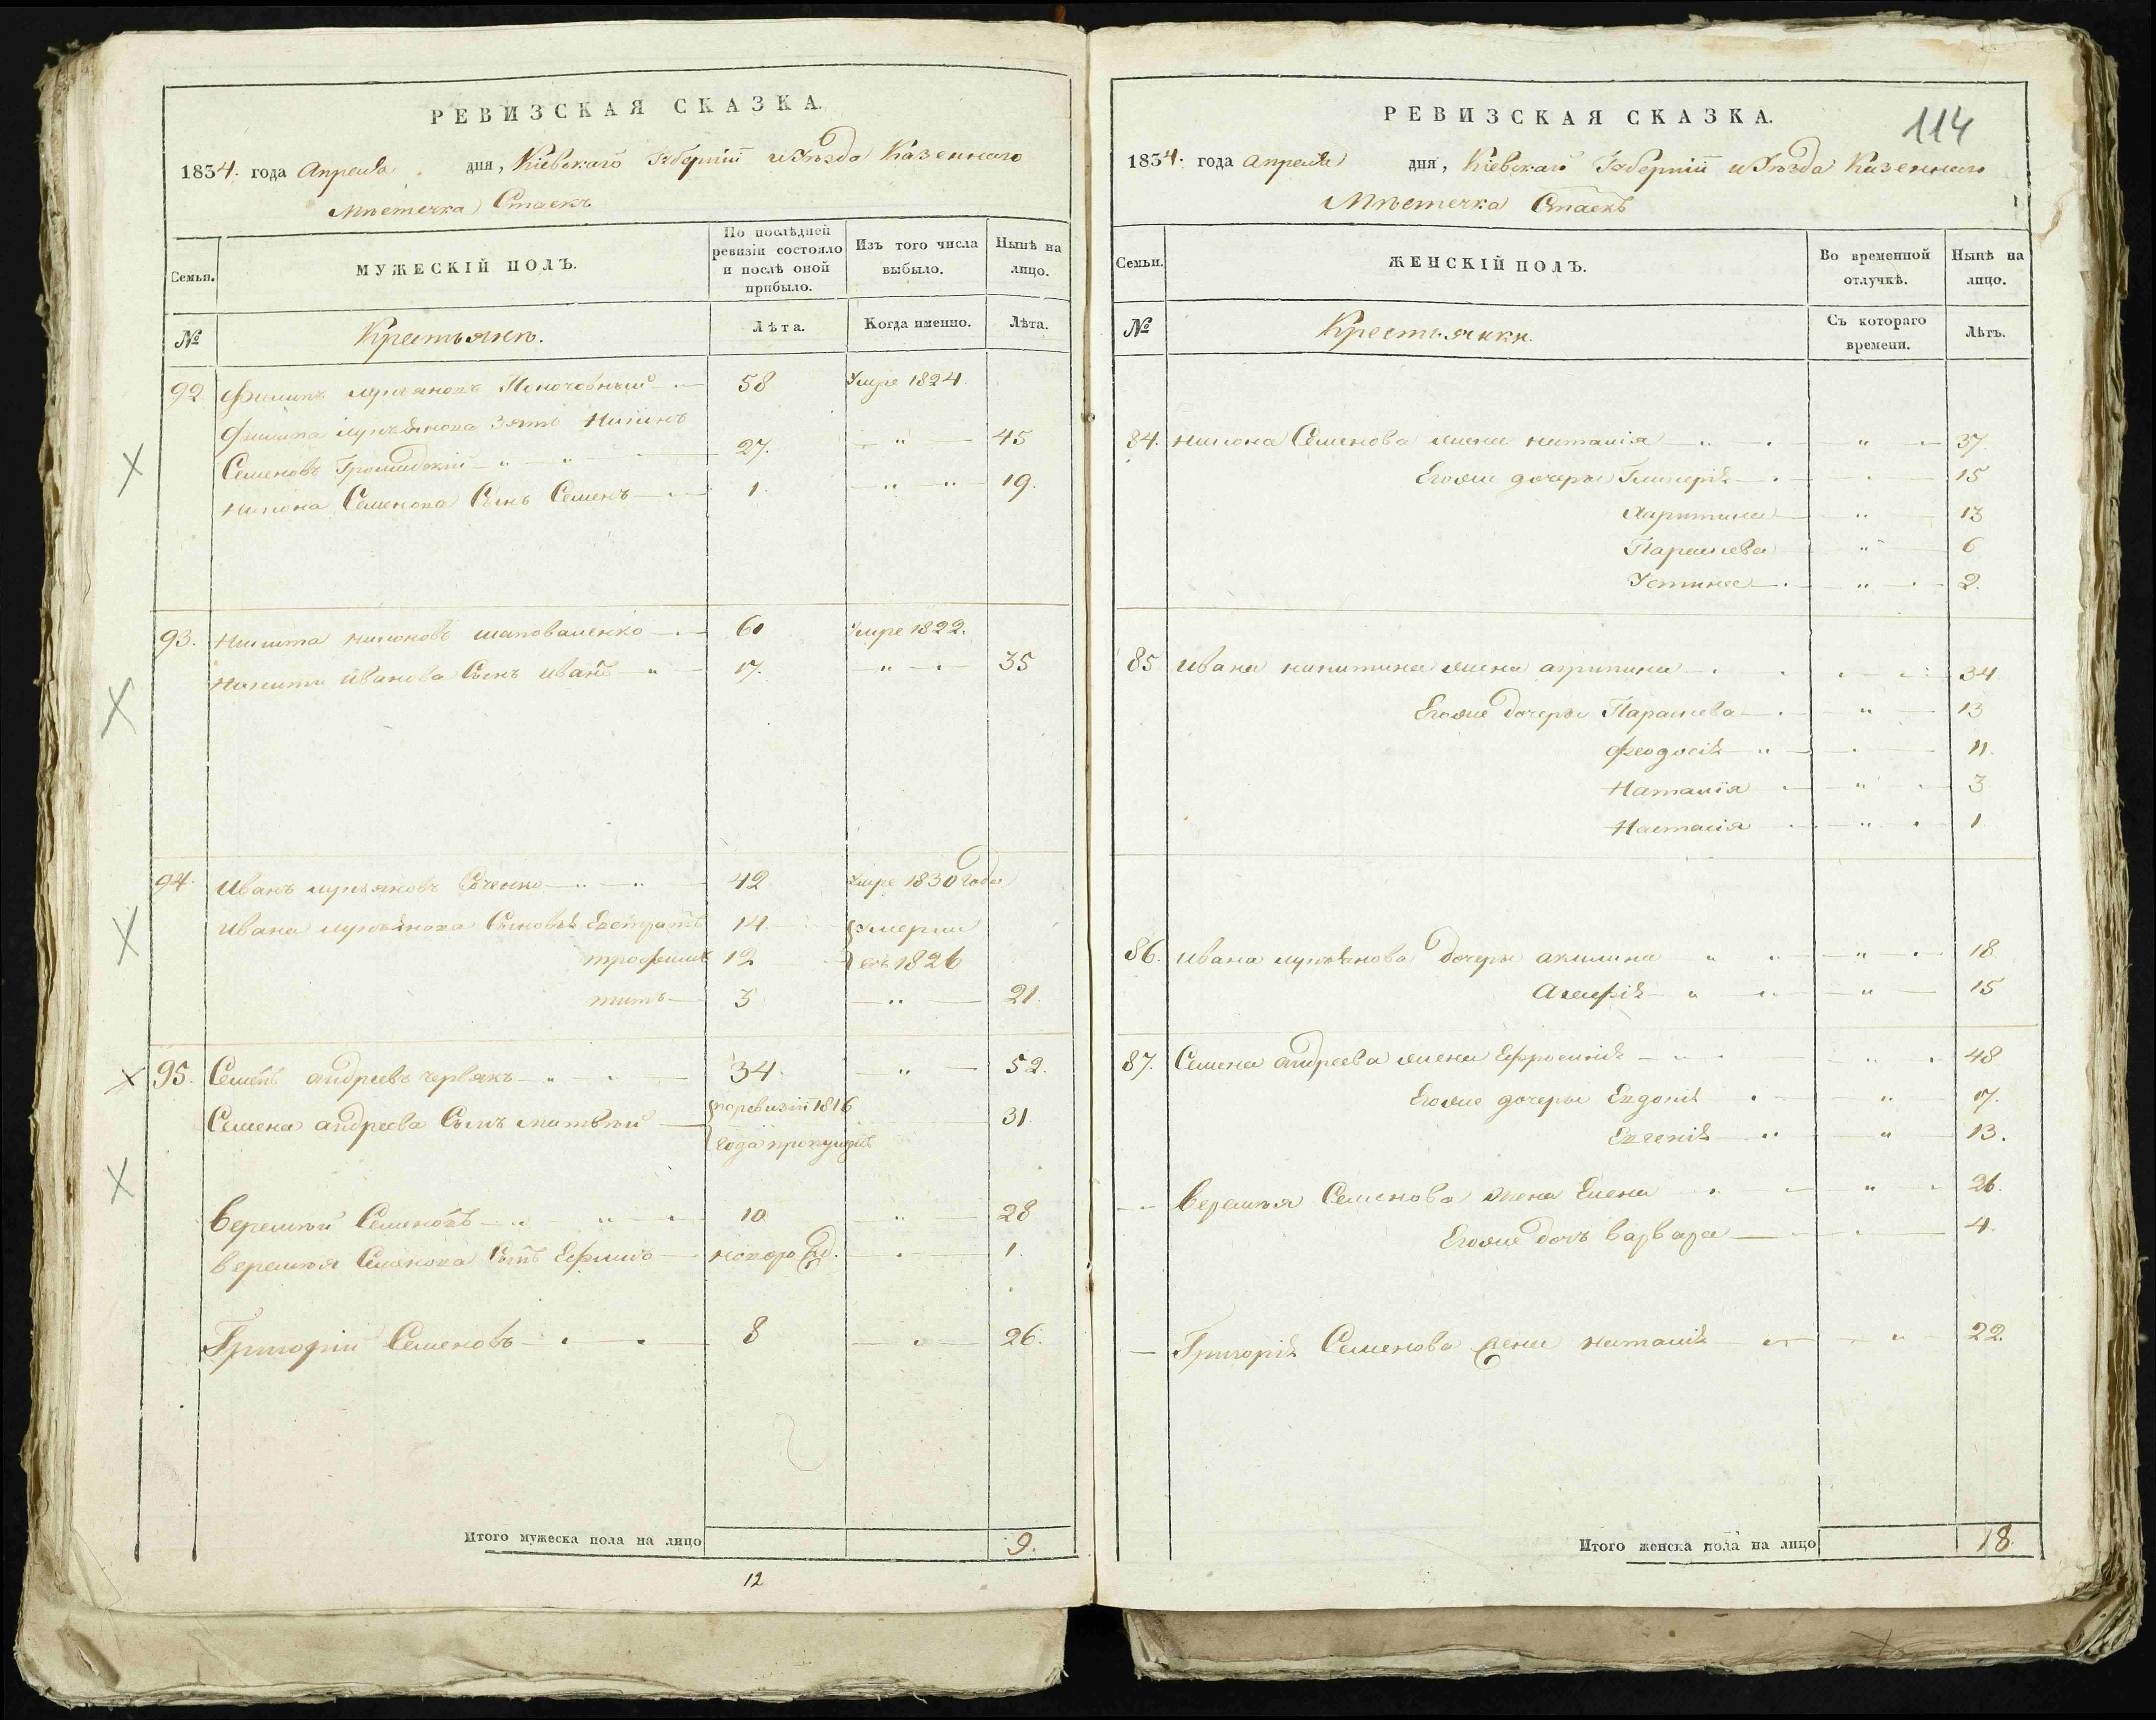 РЕВИЗСКАЯ СКАЗКА.
1834. года Апреля дня, Кіевскаго Губерніи и Уѣзда Казеннаго
Мѣстечка Стаекъ
Семьи.
МУЖЕСКІЙ ПОЛЪ.
По послѣдней ревизіи состояло и послѣ оной прибыло.
Изъ того числа выбыло.
Нынѣ на лицо.
№
Крестьяне.
Лѣта.
Когда именно.
Лѣта.
92 Филипъ Лукьяновъ 58 Умре 1824.
Филипа Лукьянова Зять Нилинъ
Семеновъ Громадскій 27. " 45
Нилона Семенова Сынъ Семенъ 1. " " 19.
93. Никита Нилоновъ Шаповаленко 61 Умре 1822.
Никити Иванова Сынъ Иванъ " 17. " 35
94. Иванъ Лукьяновъ Соченко " " 42 Умре 1830 Года
Ивана Лукьянова Сыновья Евстратъ 14. Умерли
трофимъ 12 въ 1826
титъ 3 " 21.
95. Семенъ андреевъ червякъ " 34. " 52.
Семена андреева Сынъ матвѣй поревизіи 1816 года пропущенъ 31
Веремѣй Семеновъ " " 10 " 28
Веремѣя Семенова Сынъ Ефимъ новоро д. 1.
Григорій Семеновъ 8 26.
Итого мужеска пола на лицо 9.
12
114
РЕВИЗСКАЯ СКАЗКА.
1834. года апреля дня, Кіевскаго Губерніи и Уѣзда Казеннаго
Мѣстечка Стаекъ
Семьи.
ЖЕНСКІЙ ПОЛЪ.
Во временной отлучкѣ.
Нынѣ на лицо.
№
Крестьянки.
Съ котораго времени.
Лѣтъ.
84. Нилона Семенова жена наталія " " 37
Егоже дочеры Гликерія 15
Харитина " 13
Параскева " 6
Устина " 2.
85 Ивана никитина жена агрипина 34
Егоже дочеры Параскева " 13
Феодосія " 11.
Наталія " 3
Настасія " 1
86. Ивана лукьянова дочеры акилина " " " 18
Агафія " " " 15
87. Семена андреева жена Ефросинія " " 48
Егоже дочеры Евдокія " 17.
Евгенія " " 13.
Веремѣя Семенова жена Елена " 26.
Егоже дочъ варвара 4.
Григорія Семенова жена наталія " " 22.
Итого женска пола на лицо 18.